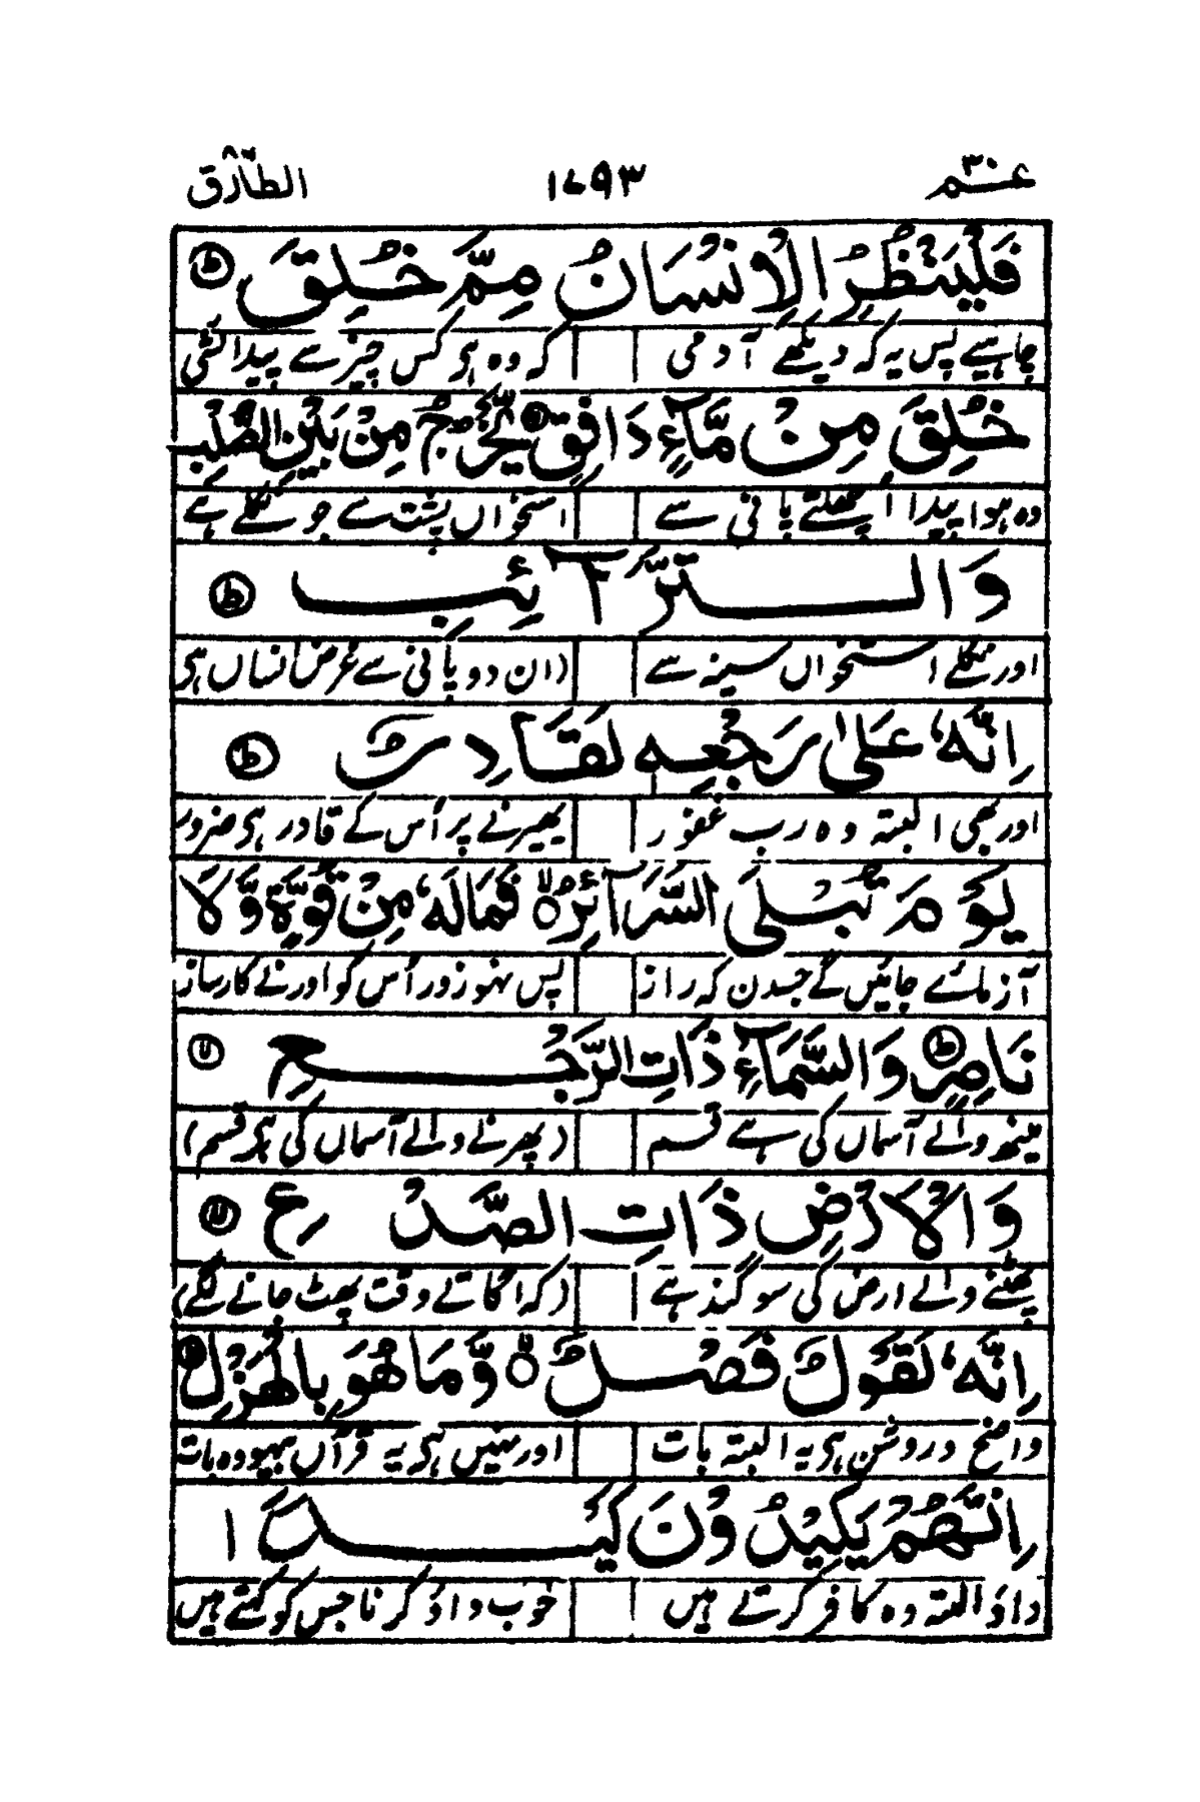 عم ۳۰ ۱۷۹۳ الطارق ۸۶
فَلْيَنْظُرِ الْاِنْسَانُ مِمَّ خُلِقَ ط
چاہیے پس یہ کہ دیکھے آدمی کہ وہ ہی کس چیز سے پیدا
خُلِقَ مِنْ مَّآءٍ دَافِقٍ يَّخْرُجُ مِنْ بَيْنِ الصُّلْبِ
وہ ہوا پیدا اچھلتے پانی سے استخواں پشت سے جو نکلے ہے
وَالتَّرَآئِبِ ط
اور نکلے استخواں سینہ سے (ان دو پانی سے غرض انساں ہی
اِنَّهٗ عَلٰى رَجْعِهٖ لَقَادِرٌ ط
اور بھی البتہ وہ رب غفور پھیرنے پر اُس کے قادر ہی ضرور
يَوْمَ تُبْلَى السَّرَآئِرُ لا فَمَالَهٗ مِنْ قُوَّةٍ وَّلَا
آزمائے جائیں گے جسدن کہ راز پس نہو زور اُس کو اور نے کارساز
نَاصِرٍ ط وَالسَّمَآءِ ذَاتِ الرَّجْعِ لا
مینھ والے آسماں کی ہے قسم (پھرنے والے آسماں کی ہی قسم)
وَالْاَرْضِ ذَاتِ الصَّدْعِ لا
پھٹنے والے ارض کی سوگند ہے (کہ اگاتے وقت پھٹ جانے لگے)
اِنَّهٗ لَقَوْلٌ فَصْلٌ لا وَّمَا هُوَ بِالْهَزْلِ ط
واضح و روشن ہی یہ البتہ بات اور نہیں ہی یہ قرآں بیہودہ بات
اِنَّهُمْ يَكِيْدُوْنَ كَيْدًا
داؤ البتہ وہ کافر کرتے ہیں خوب داؤ کرنا جس کو کہتے ہیں